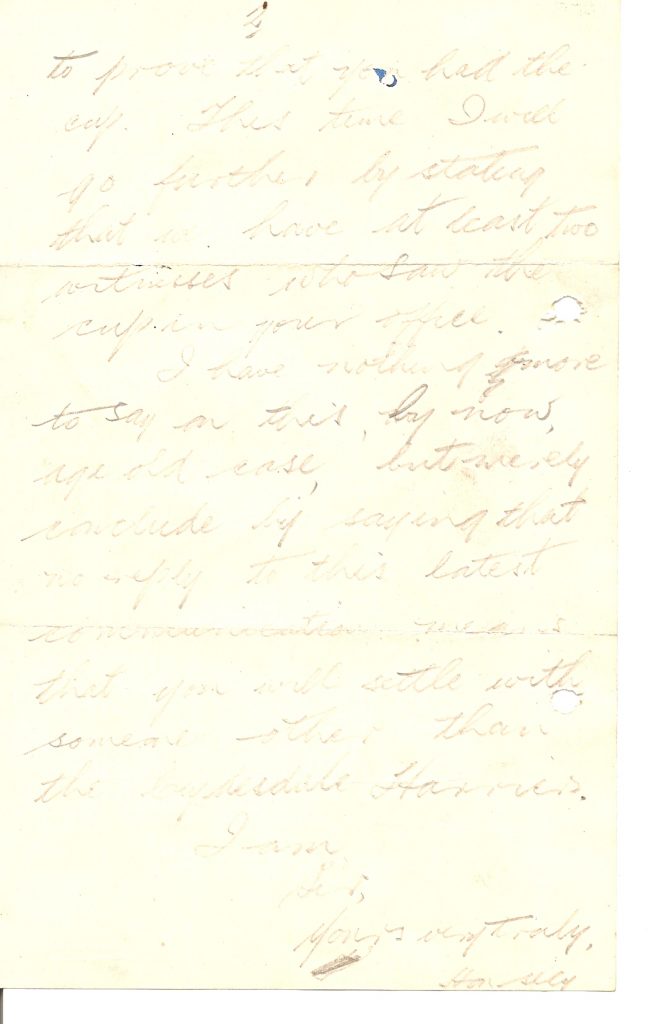 2
to prove that you had the
cup. This time I will
go further by stating
that we have at least two
witnesses who saw the
cup in your office.
I have nothing more
to say on this, by now,
age old case, but merely
conclude by saying that
no reply to this latest
communication means
that you will settle with
someone other than
the Clydesdale Harriers.
I am,
Sir,
Yours very truly,
Hon Secy